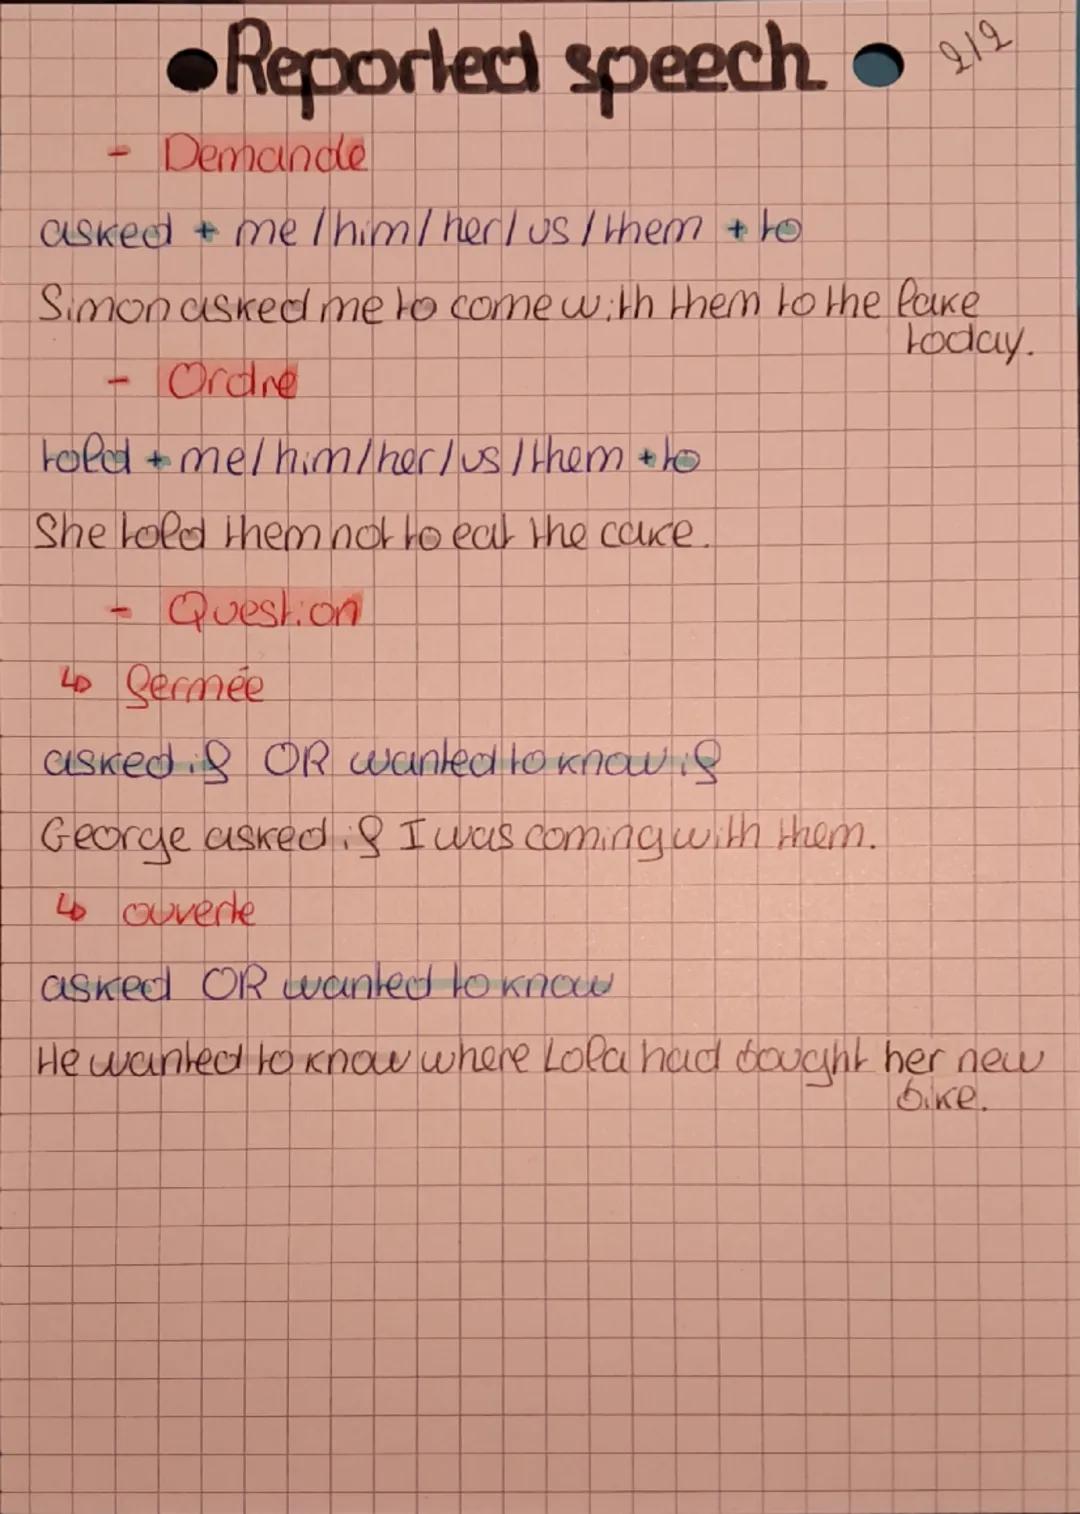 • Reported speech • 2/2
- Demande
asked + me / him / her / us / them + to
Simon asked me to come with them to the lake
today.
- Ordre
told + me / him / her / us / them + to
She told them not to eat the cake.
- Question
↳ fermée
asked if OR wanted to know if
George asked if I was coming with them.
↳ ouverte
asked OR wanted to know
He wanted to know where Lola had bought her new
bike.